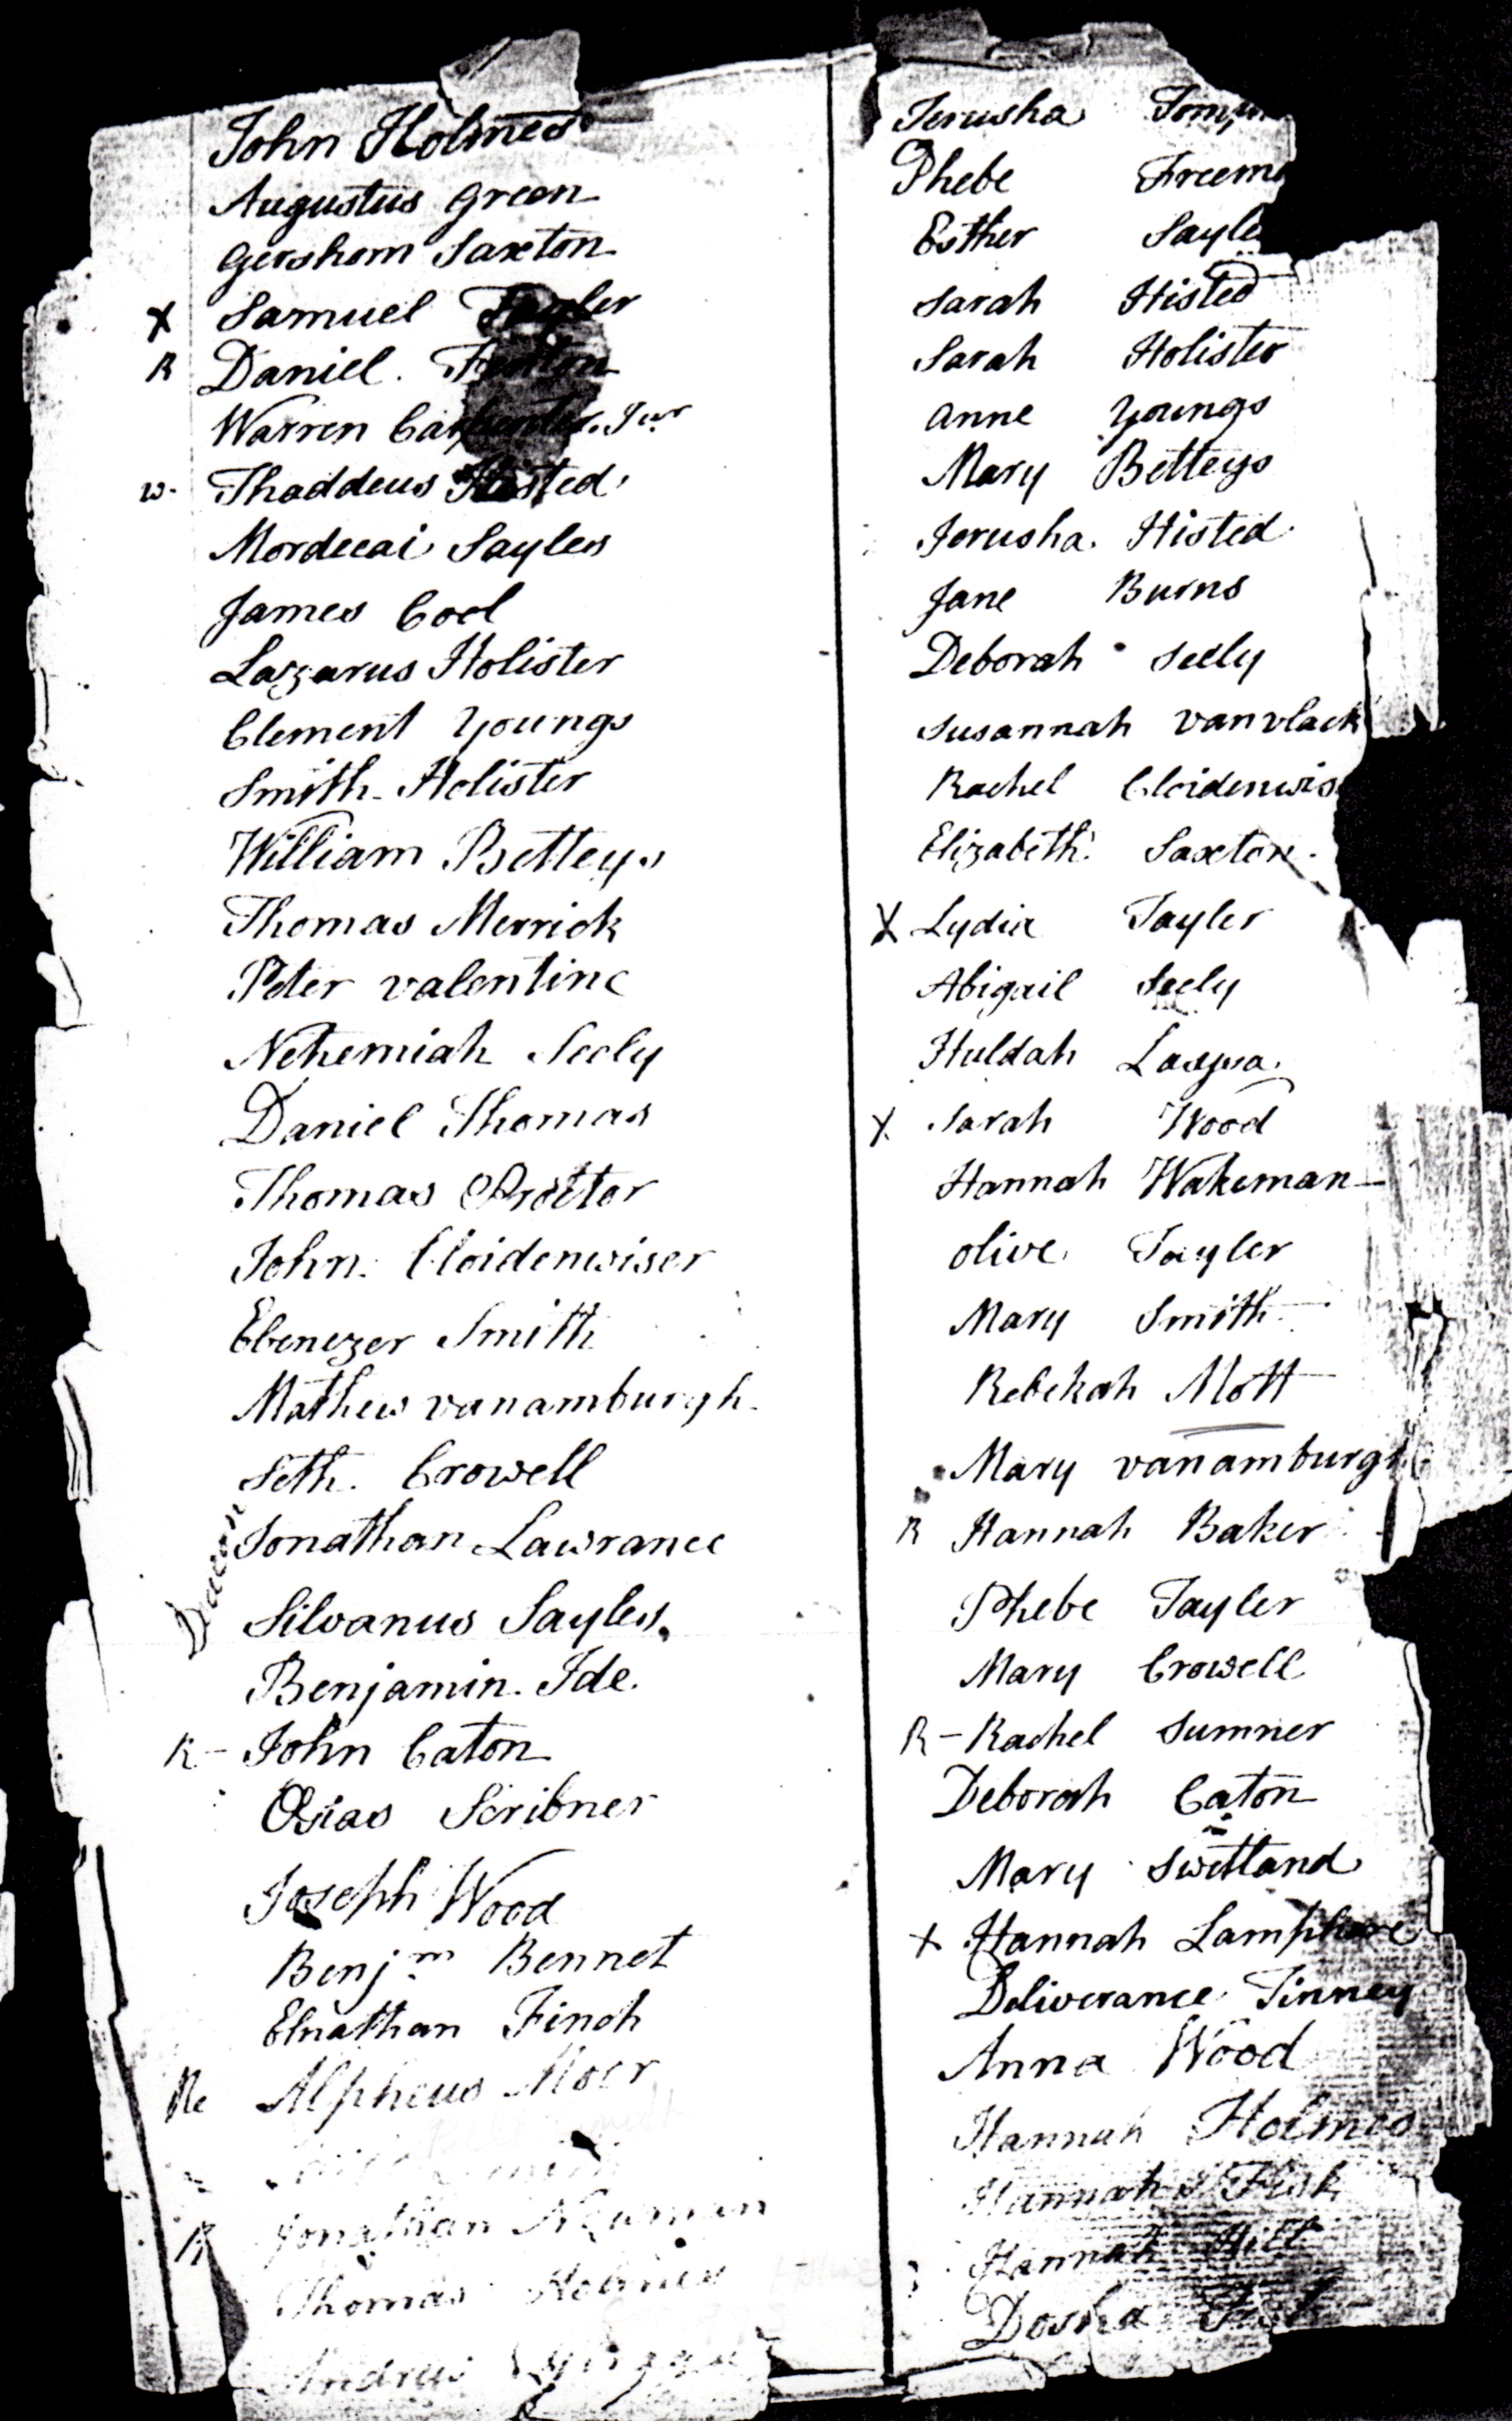 John Holmes
Augustus Green
Gershom Saxton
X Samuel Tayler
R Daniel
Warren Carpenter. Jur
w- Thaddeus Histed
Mordecai Sayles
James Cool
Lazarus Holister
Clement Youngs
Smith Holister
William Betteys
Thomas Merrick
Peter valentine
Nehemiah Seely
Daniel Thomas
Thomas Procter
John Cloidenwiser
Ebenezer Smith
Mathew vanamburgh
Seth Crowell
Deacon Jonathan Lawrance
Silvanus Sayles
Benjamin Ide
R- John Caton
Osias Scribner
Joseph Wood
Benjm Bennet
Elnathan Finch
Re Alpheus Moer
R Jonathan
Thomas Holmes
Andrus
Jerusha
Phebe Freem
Esther Sayle
Sarah Histed
Sarah Holister
Anne Youngs
Mary Betteys
Jerusha Histed
Jane Burns
Deborah Seely
Susannah vanvlack
Rachel Cloidenwis
Elizabeth Saxton
X Lydia Tayler
Abigail Seely
Huldah
X Sarah Wood
Hannah Wakeman
olive Tayler
Mary Smith
Rebekah Mott
Mary vanamburgh
R Hannah Baker
Phebe Tayler
Mary Crowell
R- Rachel Sumner
Deborah Caton
Mary Swetland
X Hannah Lamphere
Deliverance Tinney
Anna Wood
Hannah Holmes
Hannah Fisk
Hannah Hill
Dosha